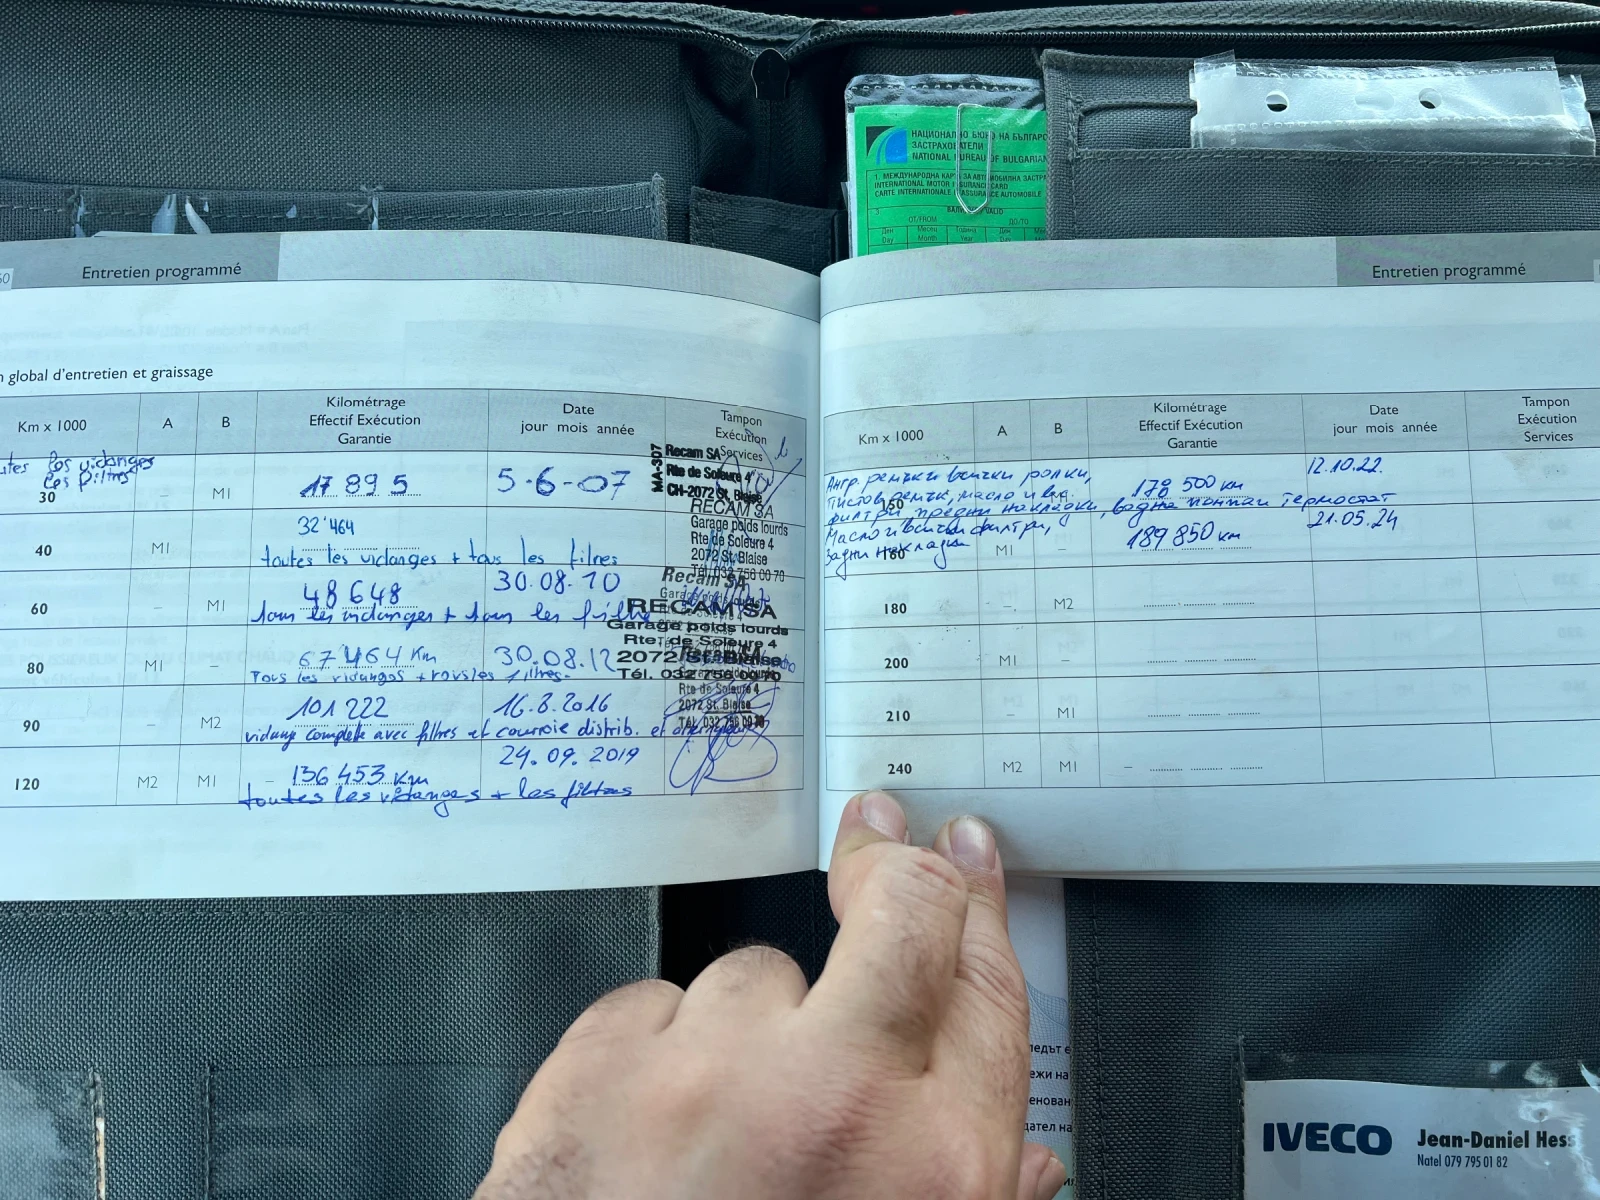 НАЦИОНАЛНО БЮРО НА БЪЛГАРС
ЗАСТРАХОВАТЕЛИ
NATIONAL BUREAU OF BULGARIAN
1. МЕЖДУНАРОДНА КАРТА ЗА АВТОМОБИЛНА ЗАСТРА
INTERNATIONAL MOTOR INSURANCE CARD
CARTE INTERNATIONALE ASSURANCE AUTOMOBILE
3. ВАЛИДНА VALID
ОТ/FROM ДО/TO
Ден Месец Година Ден Ме
Day Month Year Day
60 Entretien programmé
n global d'entretien et graissage
Km x 1000 A B Kilométrage Effectif Exécution Garantie Date jour mois année Tampon Exécution Services
toutes les vidanges
les filtres
30 – M1 17 895 5-6-07
MA-307
Recam SA
Rte de Soleure 4
CH-2072 St. Blaise
40 M1 – 32'464
toutes les vidanges + tous les filtres
RECAM SA
Garage poids lourds
Rte de Soleure 4
2072 St. Blaise
Tél. 032 756 00 70
60 – M1 48 648 30.08.10
tous les vidanges + tous les filtres
Recam SA
RECAM SA
Garage poids lourds
Rte de Soleure 4
2072 St. Blaise
Tél. 032 756 00 70
80 M1 – 67 464 Km 30.08.12
Tous les vidanges + tous les filtres.
90 – M2 101 222 16.8.2016
vidange complete avec filtres et courroie distrib. et
Rte de Soleure 4
2072 St. Blaise
Tél. 032 756 00 70
120 M2 M1 – 136 453 km 24.09.2019
toutes les vidanges + les filtres
Entretien programmé
Km x 1000 A B Kilométrage Effectif Exécution Garantie Date jour mois année Tampon Exécution Services
Ангр. ремъки всички ролки, 12.10.22.
пистов ремък, масло и вс. 178 500 км
150
филтри предни накладки, водна помпаи термостат
Масло и всички филтри, 189 850 км 21.05.24
задни накладки
160 M1 –
180 – M2
200 M1 –
210 – M1
240 M2 M1 –
ледът е
ежи на
енован
дател на
IVECO
Jean-Daniel Hess
Natel 079 795 01 82